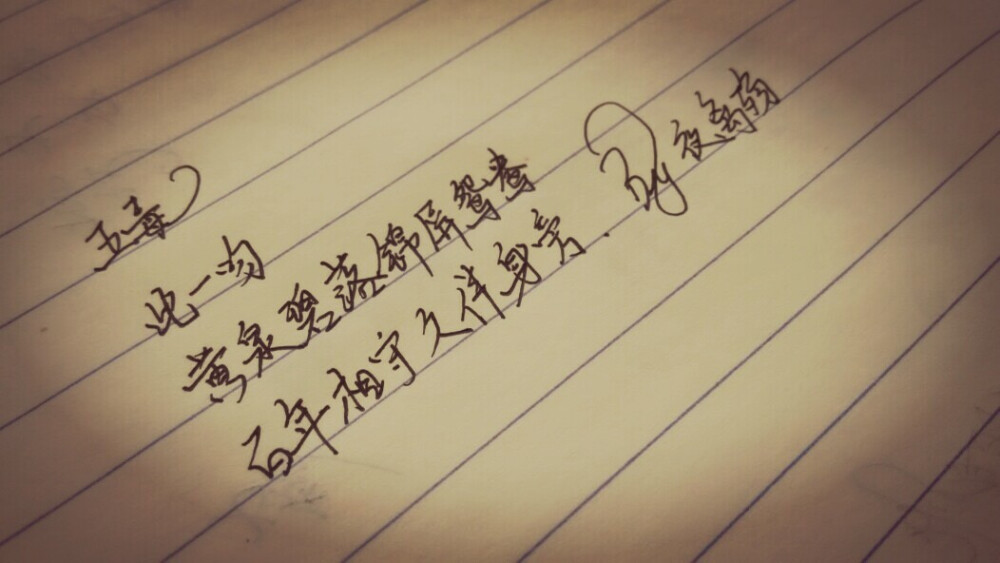 五毒
此一句
黄泉碧落锦屏鸳鸯
百年相守久伴身旁.
By 夜